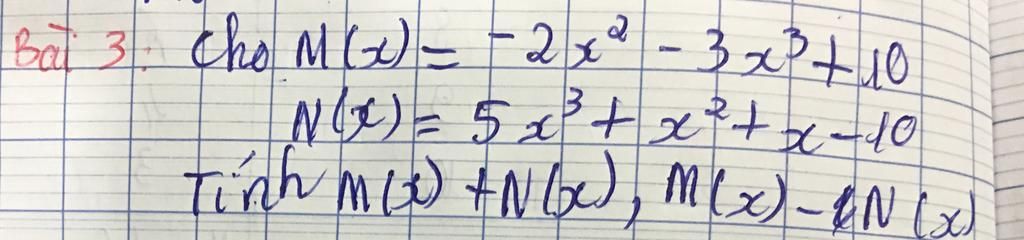 Bài 3: Cho M(x) = -2x² - 3x³ + 10
N(x) = 5x³ + x² + x - 10
Tính M(x) + N(x), M(x) - N(x)